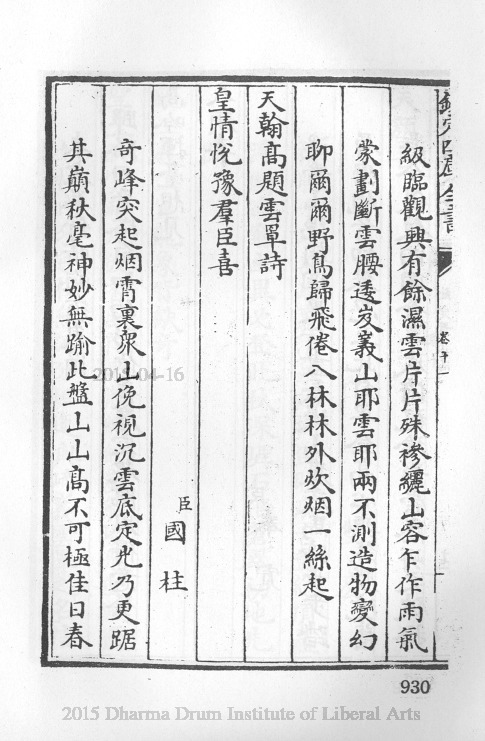 欽定四庫全書
卷十一
級臨觀興有餘濕雲片片殊襂纚山容乍作雨氣
蒙劃斷雲腰逶岌義山耶雲耶兩不測造物變幻
聊爾爾野鳥歸飛倦入林林外炊烟一絲起
天翰高題雲罩詩
皇情悅豫羣臣喜
臣國柱
奇峰突起烟霄裏衆山俛視沉雲底定光乃更踞
其巔秋毫神妙無踰此盤山山高不可極佳日春
930
2015-04-16
2015 Dharma Drum Institute of Liberal Arts